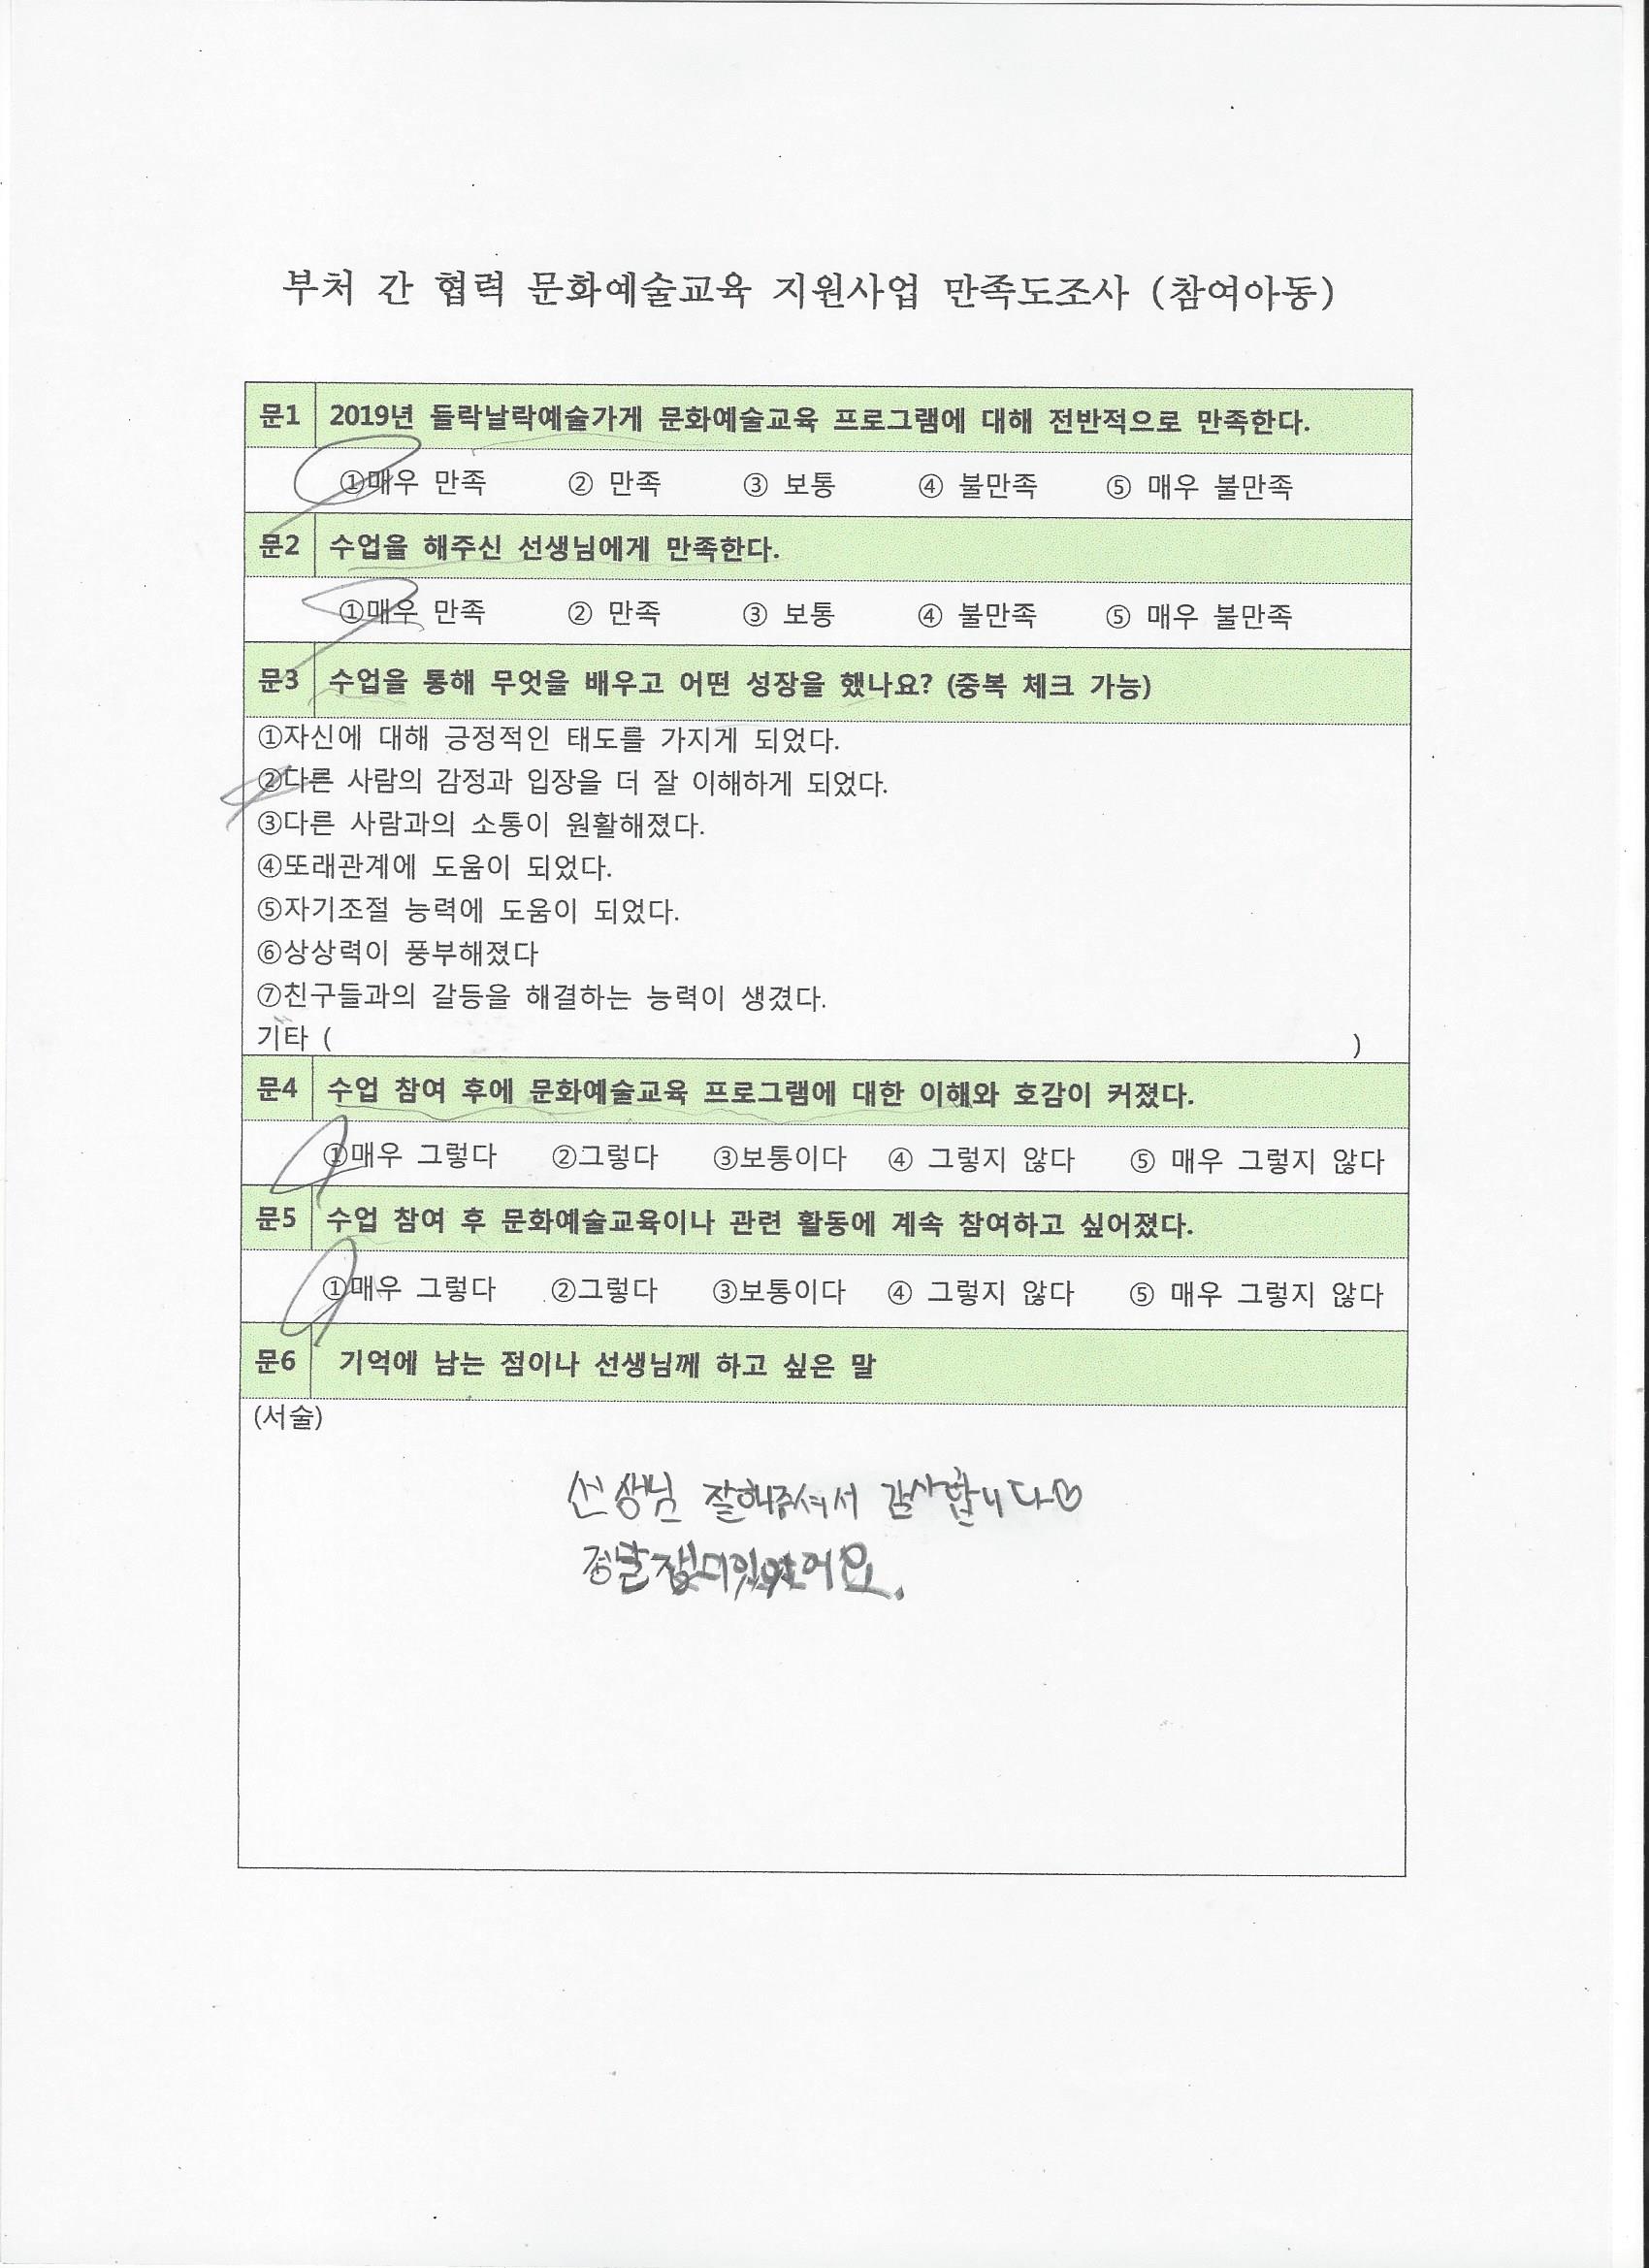 부처 간 협력 문화예술교육 지원사업 만족도조사 (참여아동)
문1 2019년 들락날락예술가게 문화예술교육 프로그램에 대해 전반적으로 만족한다.
①매우 만족 ② 만족 ③ 보통 ④ 불만족 ⑤ 매우 불만족
문2 수업을 해주신 선생님에게 만족한다.
①매우 만족 ② 만족 ③ 보통 ④ 불만족 ⑤ 매우 불만족
문3 수업을 통해 무엇을 배우고 어떤 성장을 했나요? (중복 체크 가능)
①자신에 대해 긍정적인 태도를 가지게 되었다.
②다른 사람의 감정과 입장을 더 잘 이해하게 되었다.
③다른 사람과의 소통이 원활해졌다.
④또래관계에 도움이 되었다.
⑤자기조절 능력에 도움이 되었다.
⑥상상력이 풍부해졌다
⑦친구들과의 갈등을 해결하는 능력이 생겼다.
기타 ( )
문4 수업 참여 후에 문화예술교육 프로그램에 대한 이해와 호감이 커졌다.
①매우 그렇다 ②그렇다 ③보통이다 ④ 그렇지 않다 ⑤ 매우 그렇지 않다
문5 수업 참여 후 문화예술교육이나 관련 활동에 계속 참여하고 싶어졌다.
①매우 그렇다 ②그렇다 ③보통이다 ④ 그렇지 않다 ⑤ 매우 그렇지 않다
문6 기억에 남는 점이나 선생님께 하고 싶은 말
(서술)
선생님 잘해주셔서 감사합니다♡
정말